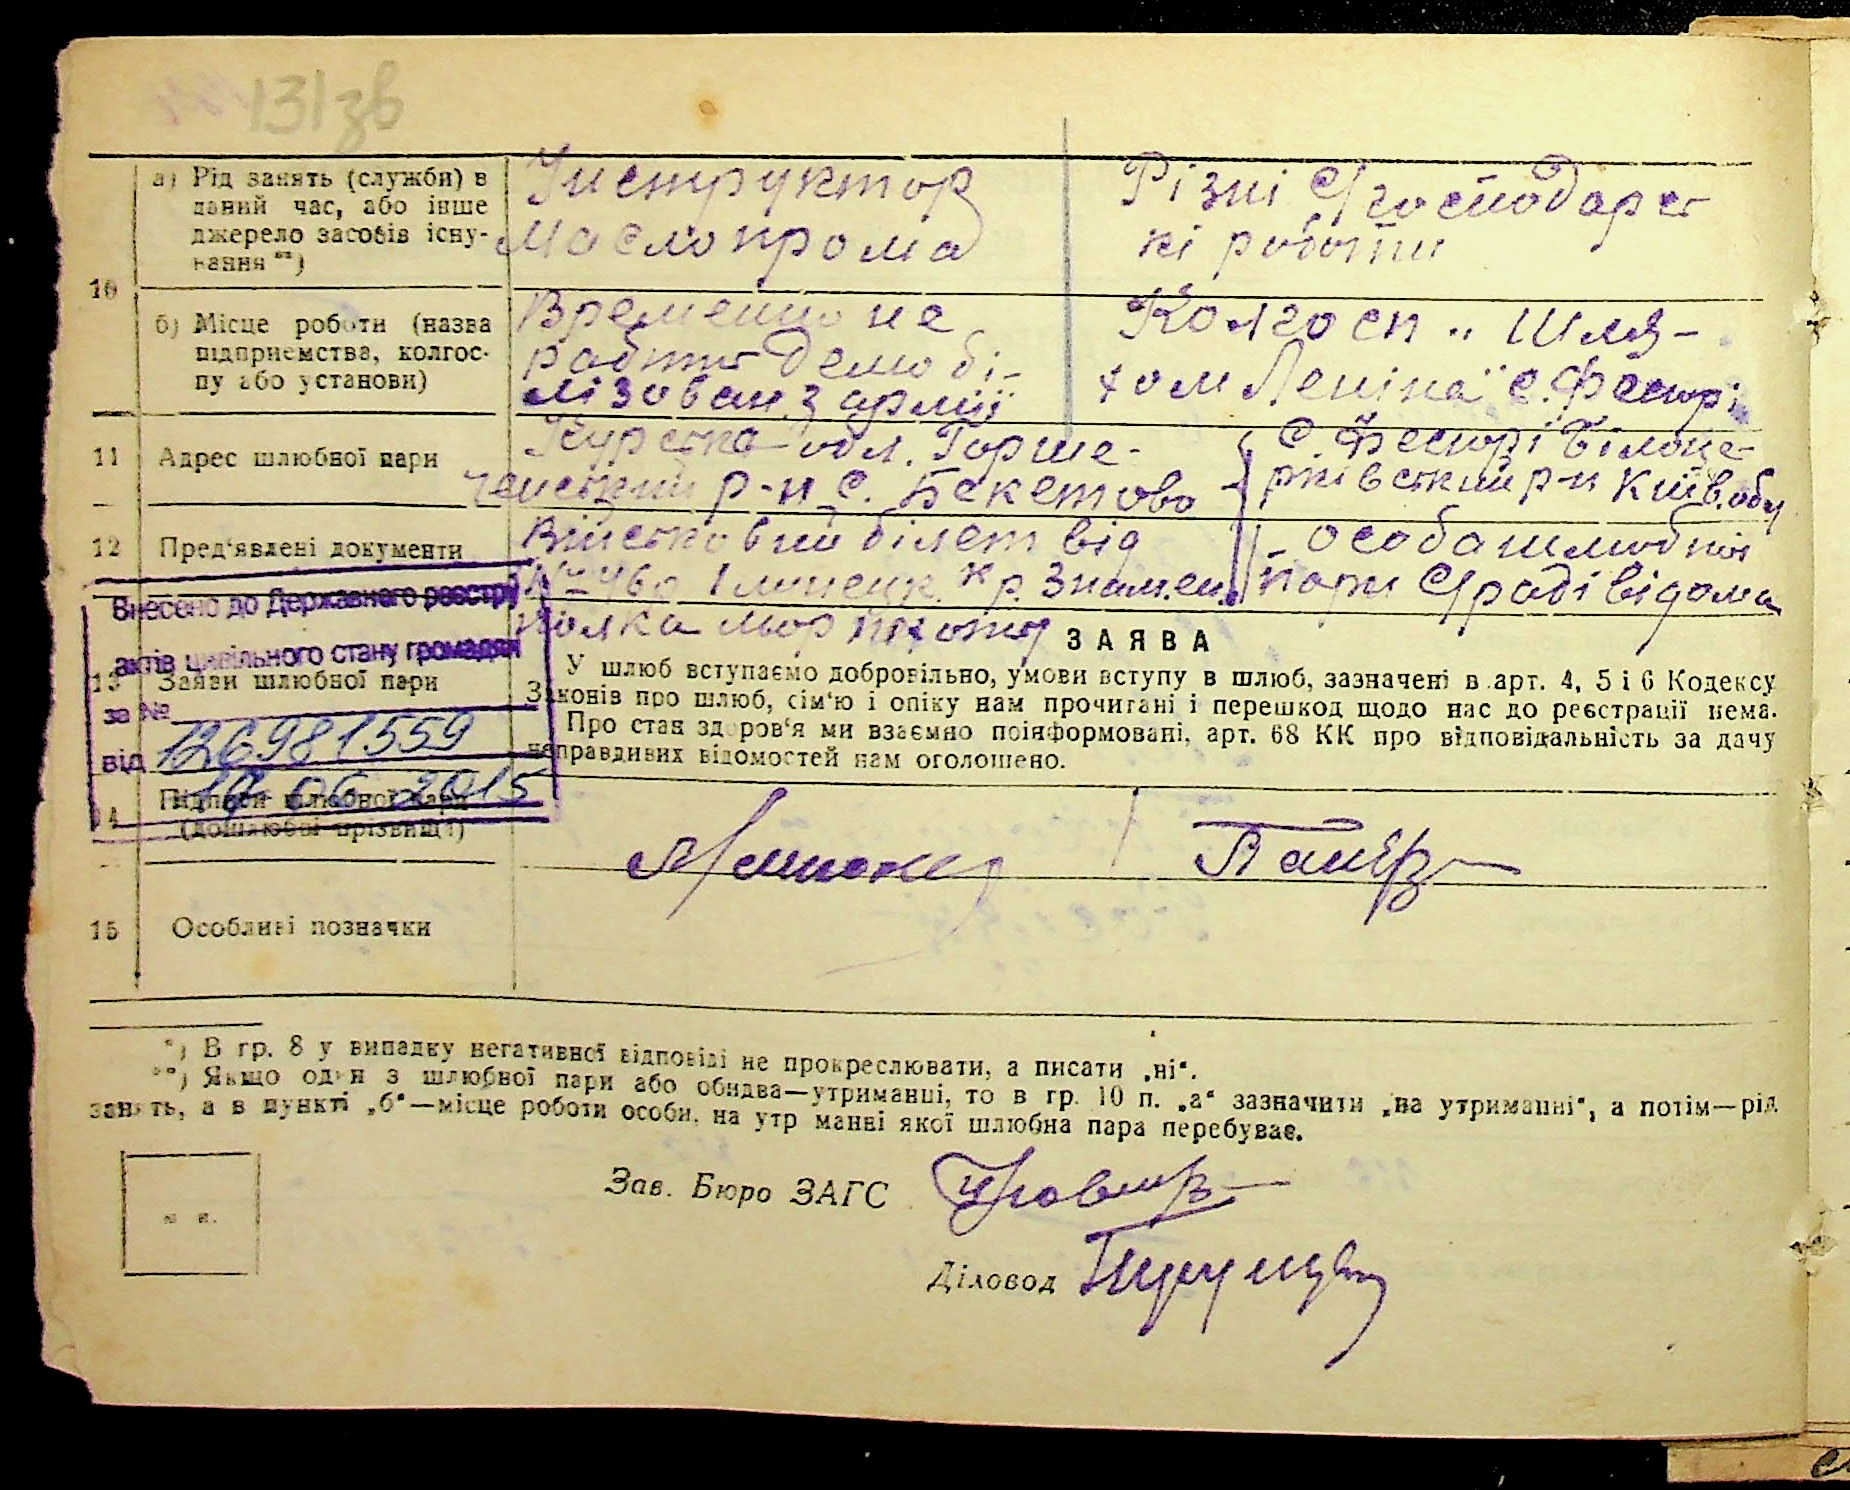 131зв
10
а) Рід занять (служби) в
даний час, або інше
джерело засобів існу-
вання **)
Інструктор
Маслопрома
Різні С/господарсь
кі роботи
б) Місце роботи (назва
підприємства, колгос-
пу або установи)
Временно не
работає демобі-
лізован. з армії
Колгосп „ Шля-
хом Леніна" с. Фесюри
11
Адрес шлюбної пари
Курська обл. Горше-
ченський р-н с. Бекетово
с. Фесюрі Білоце-
рківський р-н Київ. обл
12
Пред'явлені документи
Військовий білет від
№ 460 1 Кр. Знамен.
полка мор пехоты
особа шлюбної
пари С/раді відома
Внесено до Державного реєстру
актів цивільного стану громадян
за № 126981559
від 06 2015
13
Заяви шлюбної пари
ЗАЯВА
У шлюб вступаємо добровільно, умови вступу в шлюб, зазначені в арт. 4, 5 і 6 Кодексу
Законів про шлюб, сім'ю і опіку нам прочитані і перешкод щодо нас до реєстрації нема.
Про стан здоров'я ми взаємно поінформовані, арт. 68 КК про відповідальність за дачу
неправдивих відомостей нам оголошено.
14
Підписи шлюбної пари
(дошлюбні прізвища)
15
Особливі позначки
*) В гр. 8 у випадку негативної відповіді не прокреслювати, а писати „ні".
**) Якщо один з шлюбної пари або обидва—утриманці, то в гр. 10 п. „а" зазначити „на утриманні", а потім—рід
занять, а в пункті „б"—місце роботи особи, на утриманні якої шлюбна пара перебуває.
Зав. Бюро ЗАГС
Діловод